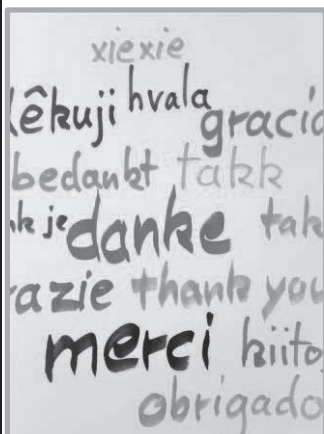 xiexie
êkuji hvala
gracia
bedankt takk
nk je danke tak
razie thank you
merci kiito
obrigado